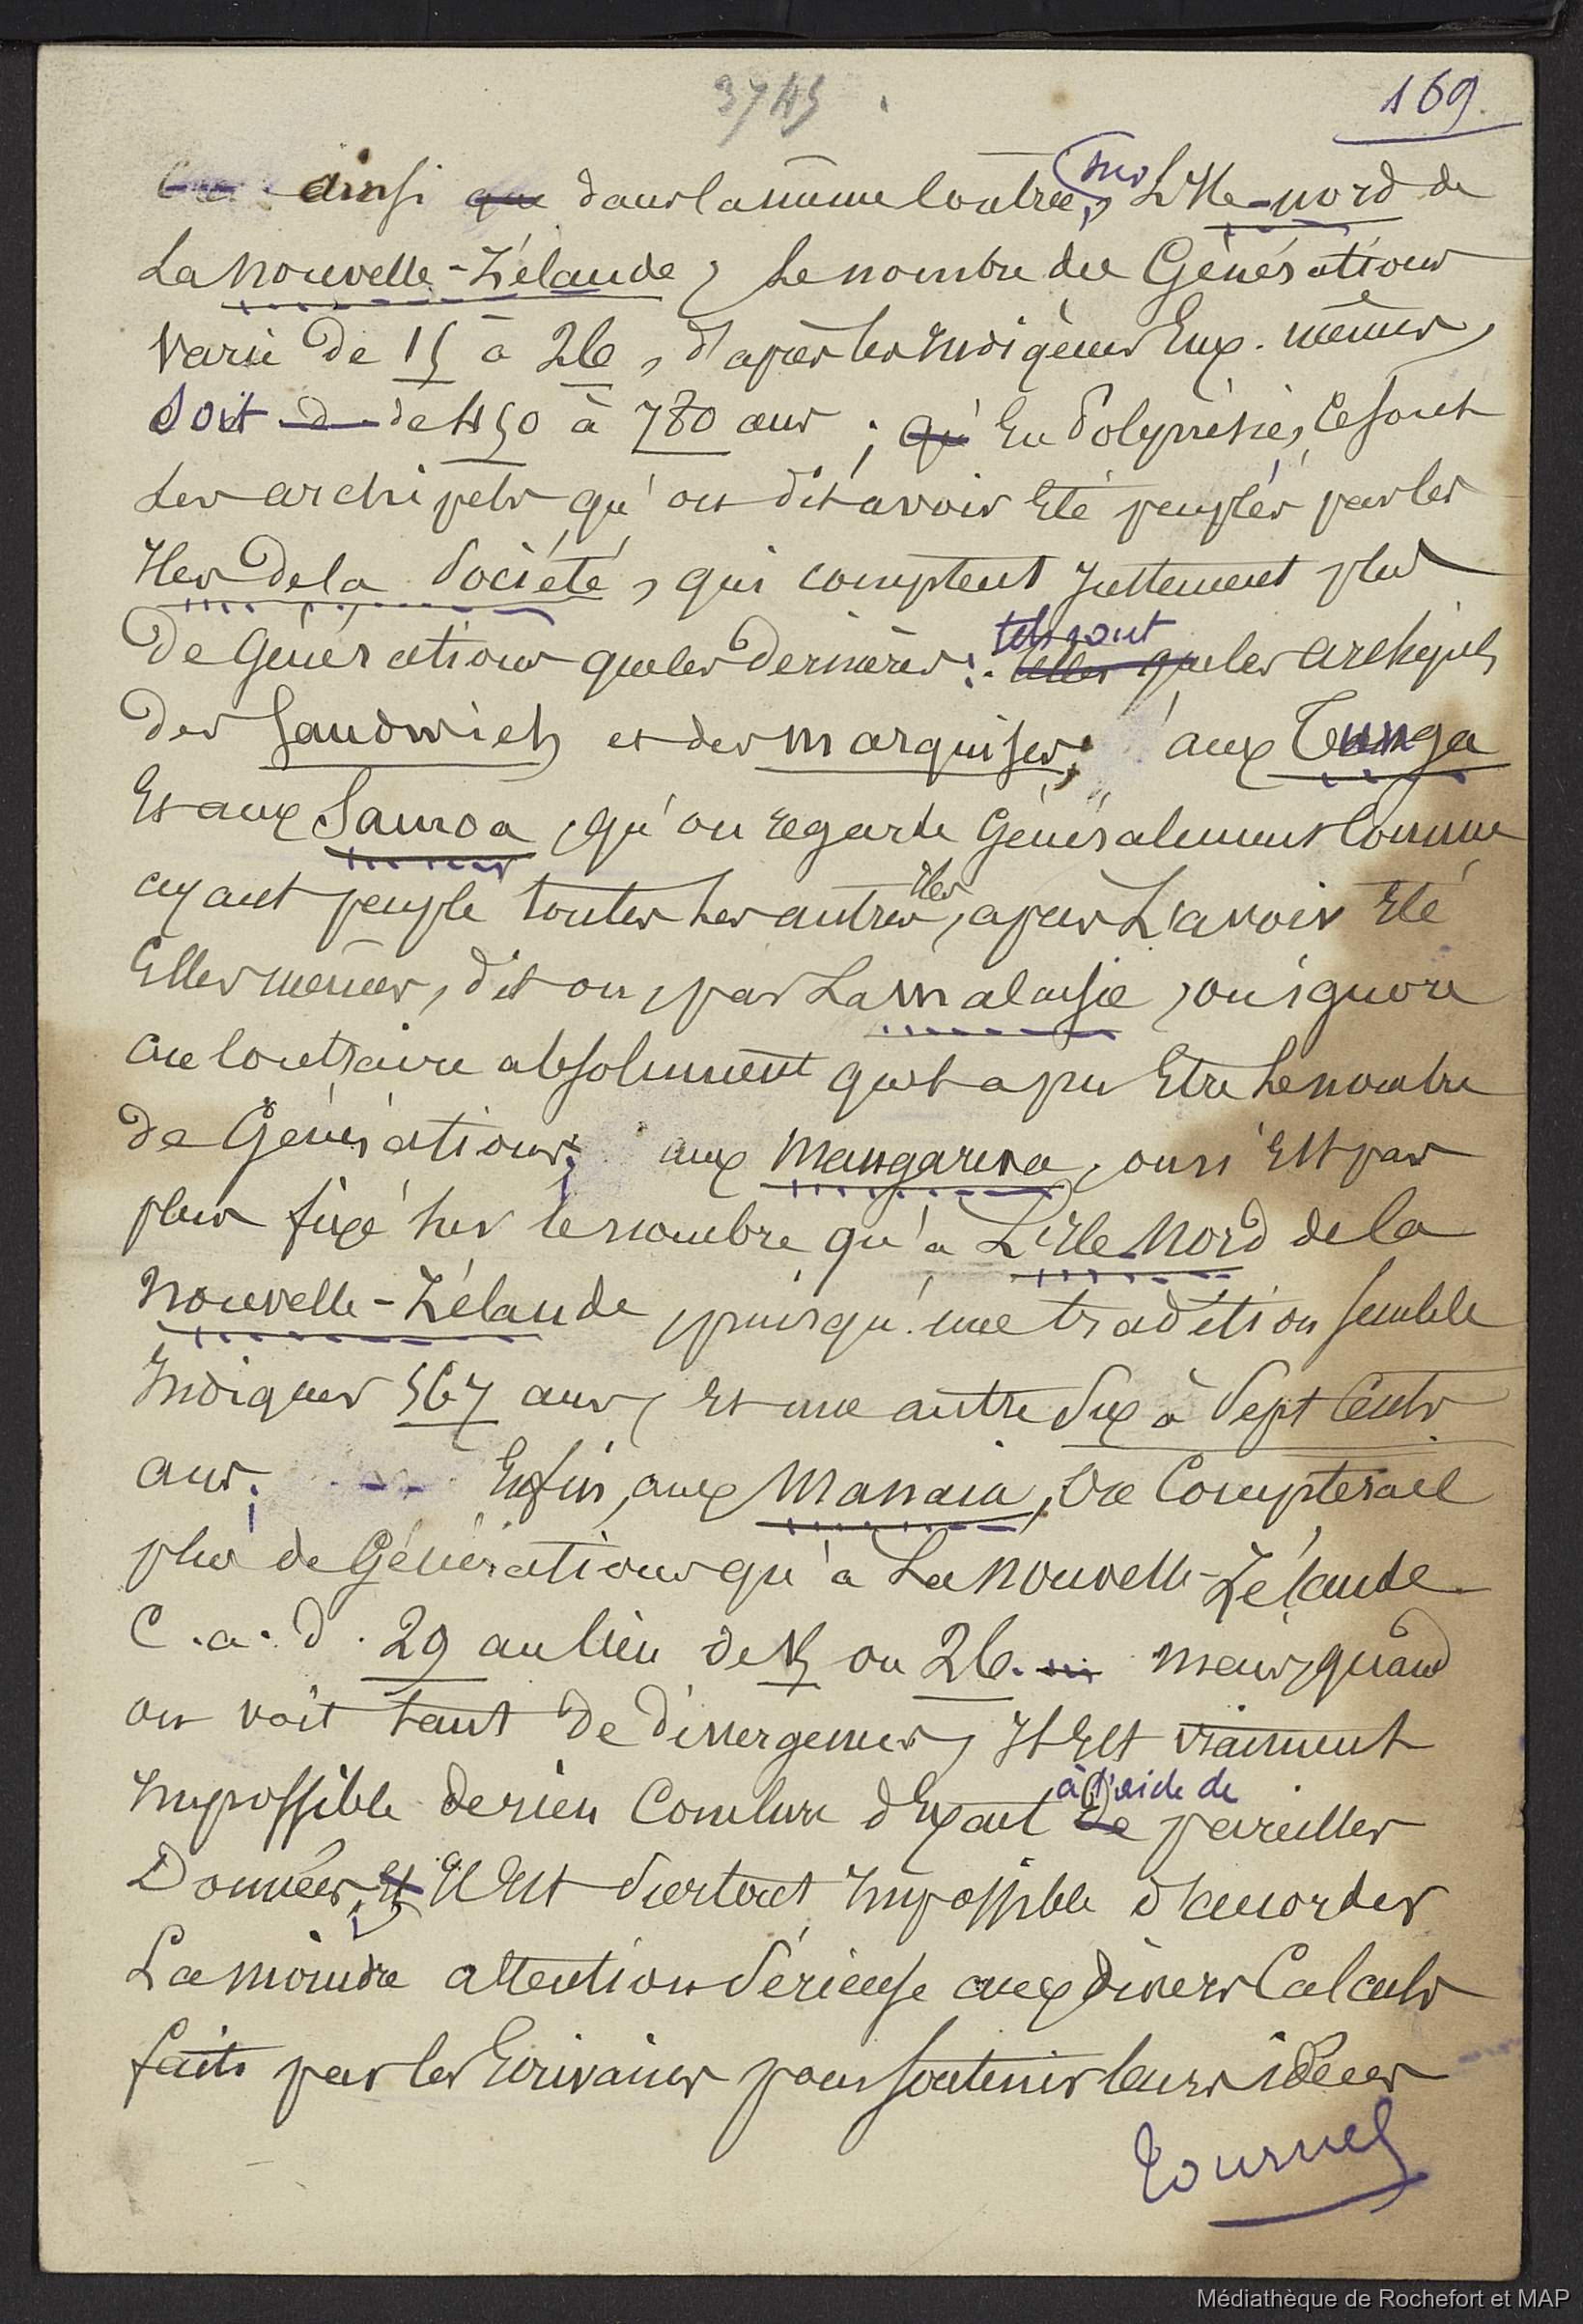 3745
169.
ainsi que dans la même contrée, sur L'Ile-nord de
La nouvelle-Zélande, Le nombre des Générations
varie de 15 à 26, d'après les Indigènes Eux-mêmes,
Soit de 450 à 780 ans ; qu' En Polynésie, Ce sont
Les archipels qu'on dit avoir Eté peuplés par les
Iles de la Société, qui comptent Justement plus
De Générations que les dernières : tels sont telles que les archipels
Des Sandwich et des marquises ; aux Tunga
Et aux Samoa, qu'on regarde Généralement Comme
ayant peuplé toutes Les autres Iles, après L'avoir Eté
Elles mêmes, dit on, par La malaisie, on ignore
au Contraire absolument quel a pu Etre Le nombre
de Générations ; aux Mangareva, on n'Est pas
plus fixé sur le nombre qu'à L'Ile Nord de la
Nouvelle-Zélande, puisqu'une tradition semble
Indiquer 567 ans, Et une autre Six à Sept Cents
ans ; Enfin, aux Manaia, On Compterait
plus de Générations qu'à La Nouvelle-Zélande
C.a.d. 29 au lieu de 15 ou 26. mais, quand
on voit tant De Divergences, Il Est vraiment
Impossible de rien Conclure d'Exact à l'aide de De pareilles
Données, et Il Est Surtout Impossible d'accorder
La moindre attention Sérieuse aux divers Calculs
faits par les Ecrivains pour Soutenir leurs idées
Tournez
Médiathèque de Rochefort et MAP